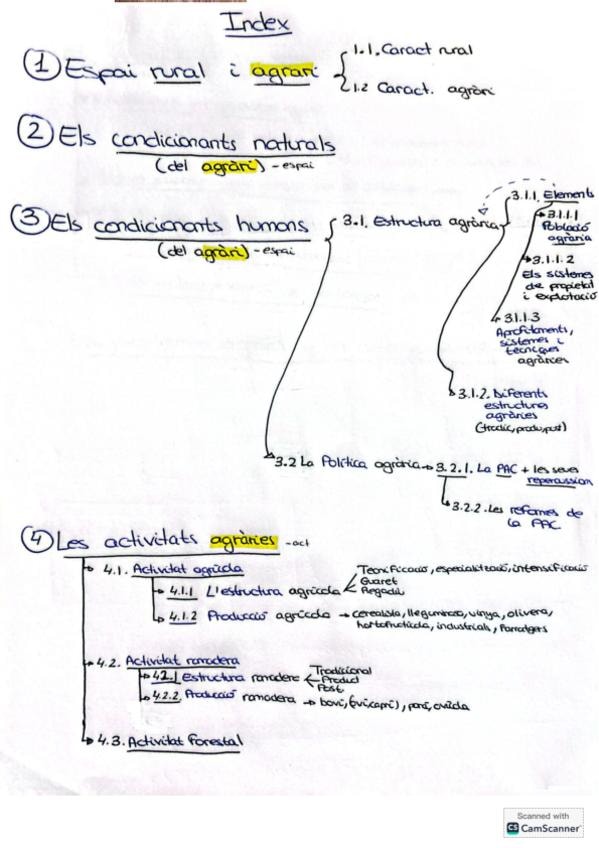 Index
1 Espai rural i agrari
1.1. Caract rural
1.2 Caract. agràri
2 Els condicionants naturals
(del agràri) - espai
3 Els condicionants humans
(del agràri) - espai
3.1. Estructura agrària
3.1.1. Elements
3.1.1.1
Població
agrària
3.1.1.2
Els sistemes
de propietat
i explotació
3.1.1.3
Aprofitaments,
sistemes i
tècniques
agràries
3.1.2. Diferents
estructures
agràries
(tradic, produ, post)
3.2 La Política agrària
3.2.1. La PAC + les seves
repercussion
3.2.2. Les reformes de
la PAC
4 Les activitats agràries - act
4.1. Activitat agrícola
4.1.1 L'estructura agrícola
Tecnificació, especialització, intensificació
Guaret
Regadiu
4.1.2 Producció agrícola → cerealista, lleguminosa, vinya, olivera,
hortofructícola, industrials, farratgers
4.2. Activitat ramadera
4.2.1 Estructura ramadera
Tradicional
Product
Post.
4.2.2. Producció ramadera → boví, (ovicaprí), porcí, avícola
4.3. Activitat forestal
Scanned with
CS CamScanner